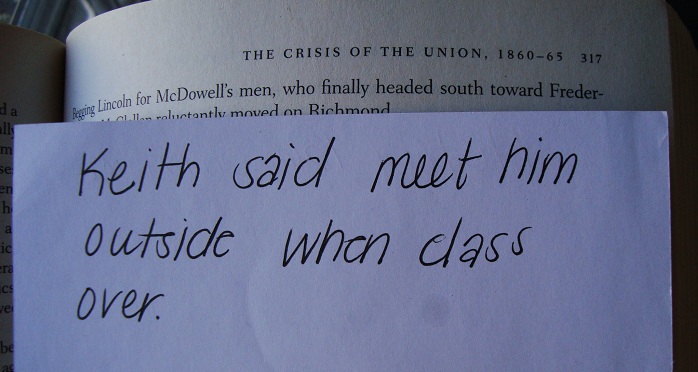 THE CRISIS OF THE UNION, 1860–65 317
Begging Lincoln for McDowell's men, who finally headed south toward Freder-
McClellan reluctantly moved on Richmond
Keith said meet him
outside when class
over.